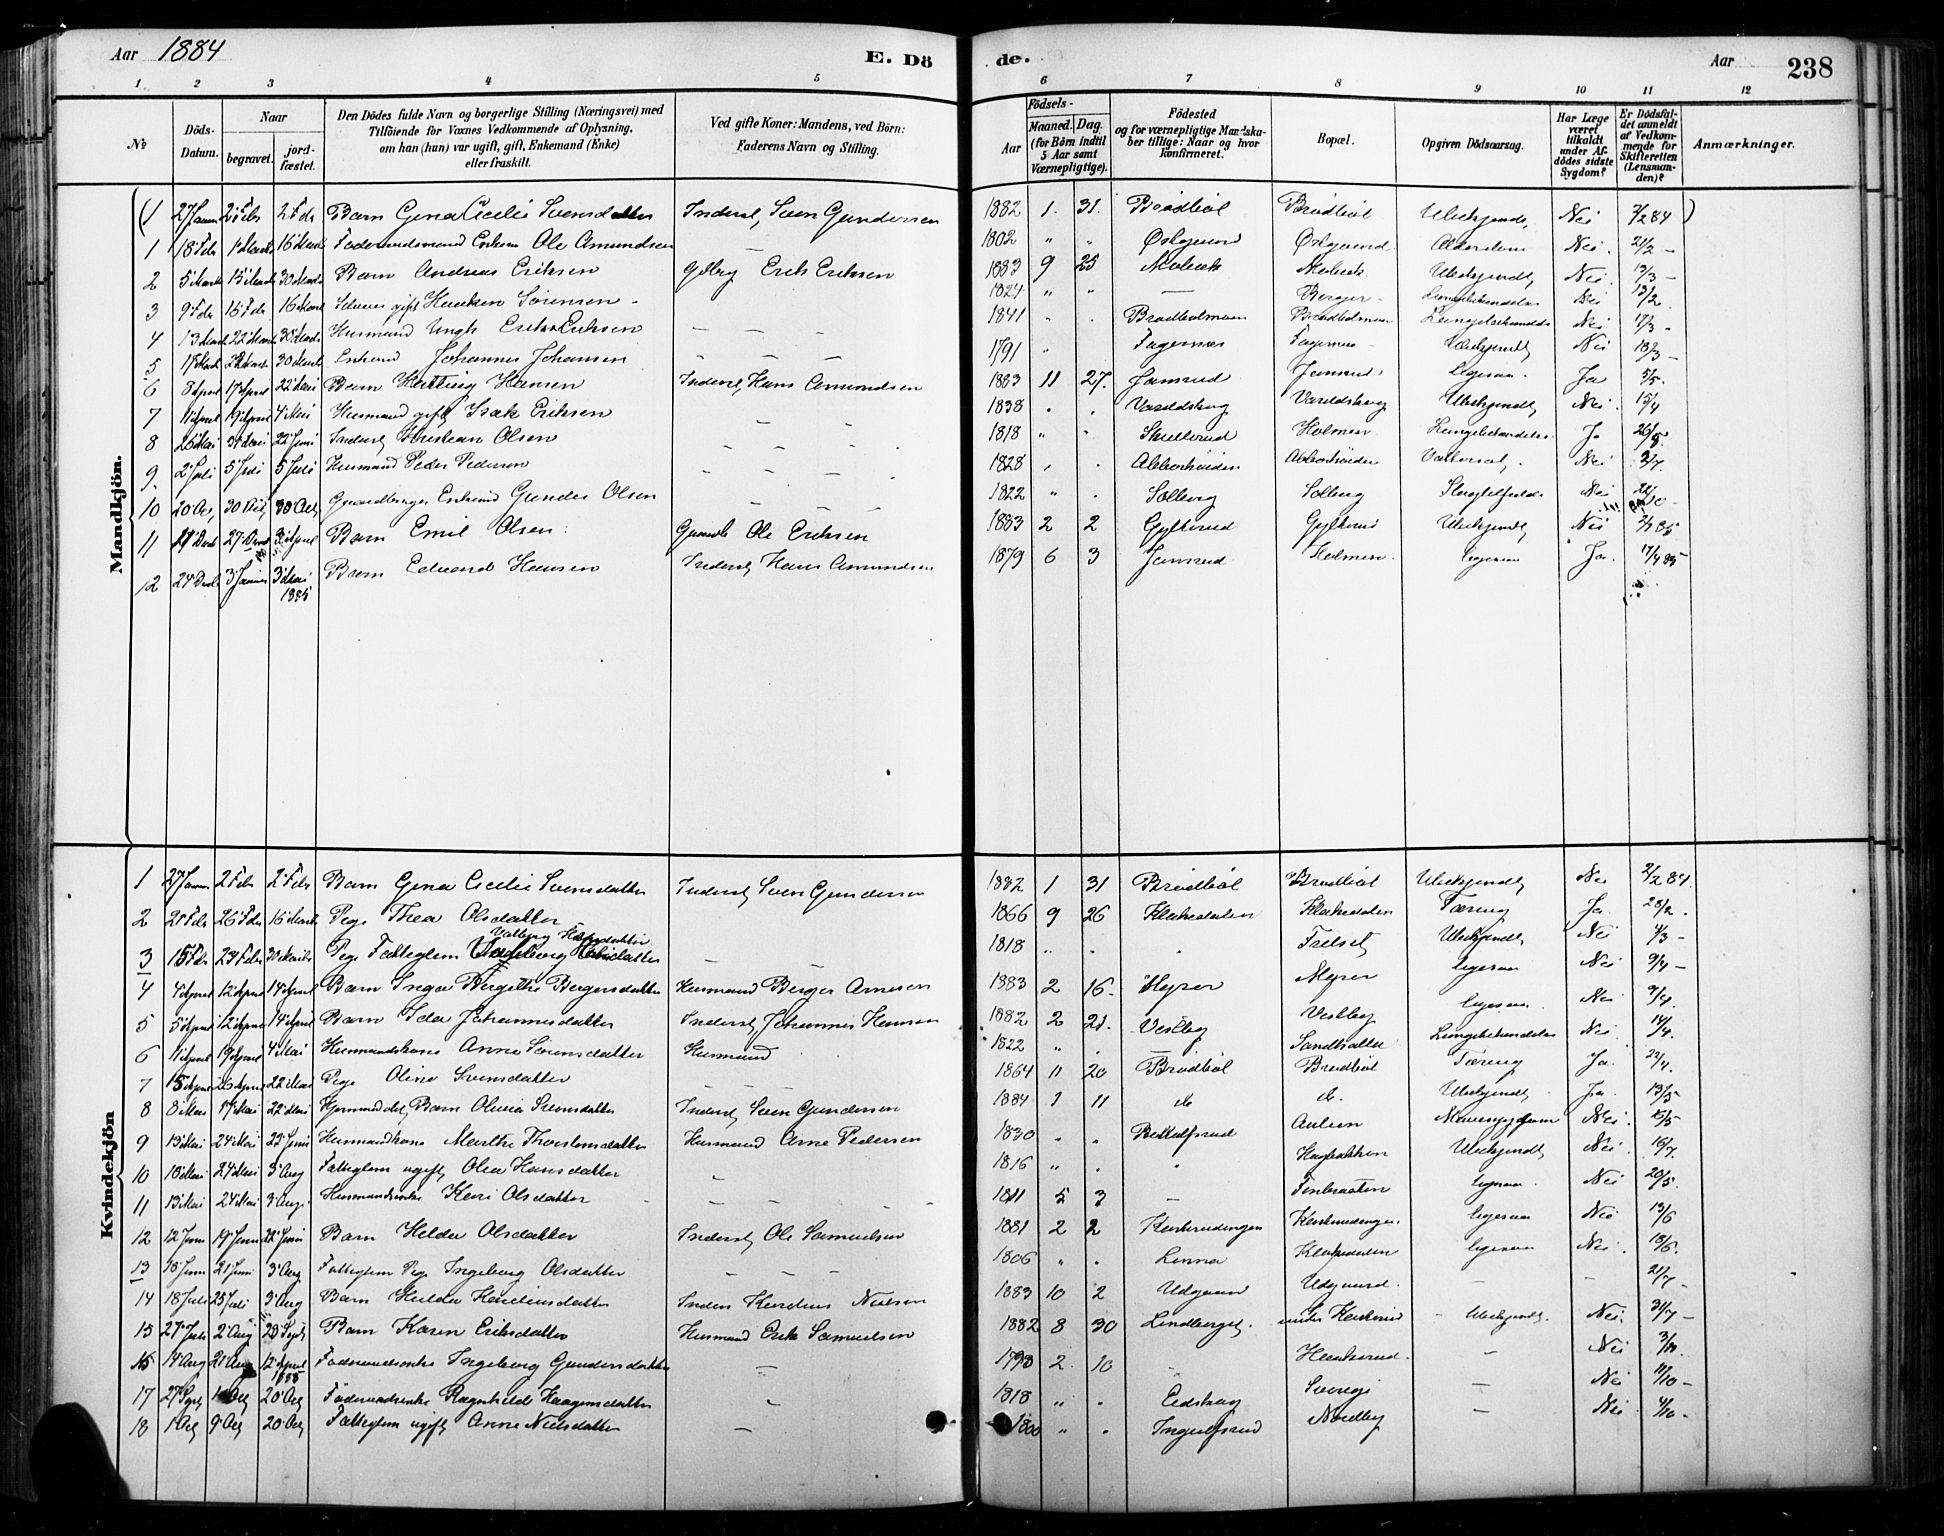 Aar 1884 E. Dö de. Aar 238
1 2 3 4 5 6 7 8 9 10 11 12
№ Döds-Datum. Naar begravet. jord-fæstet. Den Dödes fulde Navn og borgerlige Stilling (Næringsvei) med Tilföiende for Voxnes Vedkommende af Oplysning, om han (hun) var ugift, gift, Enkemand (Enke) eller fraskilt. Ved gifte Koner: Mandens, ved Börn: Faderens Navn og Stilling. Födsels- Aar Maaned. Dag. (for Börn indtil 5 Aar samt Værnepligtige). Födested og for værnepligtige Mandskaber tillige: Naar og hvor konfirmeret. Bopæl. Opgiven Dödsaarsag. Har Læge været tilkaldt under Afdödes sidste Sygdom? Er Dödsfaldet anmeldt af Vedkommende for Skifteretten (Lensmanden)? Anmærkninger.
Mandkjön.
(1 27 Janu 2 Febr 2 Febr Barn Gina Cecilie Svensdatter Inderst, Sven Gundersen 1882 1. 31. Brødbøl Brødbøl Ubekjendt, Nei 2/2 84 )
1 18 Febr 1 Marts 16 Marts Føderaadsmand Enkem Ole Amundsen — 1802 " " Østgaard Østgaard Alderdom Nei. 21/2 -
2 5 Marts 15 Marts 30 Marts Barn Andreas Eriksen Gdbrg Erik Eriksen 1883 9 25 Molbæk Molbæk Ubekjendt Nei. 13/3 -
3 9 Febr 16 Febr 16 Marts gift Haaken Sörensen - 1824 " " — Berger - Lungebetændelse Nei 13/2.
4 13 Marts 22 Marts 30 Marts Husmand Ungk Erik Eriksen — — 1841 . . Brødbolmoen Brødbolmoen Lungebetændelse Nei 17/3 -
5 17 Marts 30 Marts Enkem Johannes Johansen — — — 1791 " Fagernæs Fagernæs - Ubekjendt Nei 18/3 -
6 8 April 17 April 22 Mai Barn Hartvig Hansen Inderst, Hans Amundsen 1883 11 27. Jamrud Jamrud. Ligesaa. Ja 5/5.
7 11 April 19 April 4 Mai Husmand gift Isak Eriksen — — 1838 . . Varaldskog Varaldskog Ubekjendt Nei. 15/4
8 26 Mai 31 Mai 22 Juni Inderst, Kristian Olsen — — 1818 " . Skullerud Holmen Lungebetændelse Ja 26/5
9. 2 Juli 5 Juli 5 Juli Husmand Peder Pedersen — — — 1828 , . Abborhøiden Abborhøiden Vattersot. Nei 3/7
10 20 Oct, 30 Oct, 30 Oct, Gaardbruger Enkem Gunder Olsen — — 1822 " . Solberg Solberg Slagtilfælde Nei
11 17 Decbr 27 Decbr April Barn Emil Olsen. Gaardb Ole Eriksen 1883 2 2 Gylterud Gylterud Ubekjendt Nei 2/1 85
12 24 Decbr 3 Januar 3 Mai 1885 Barn Edvard Hansen Inderst, Hans Amundsen 1879 6 3 Jamrud Holmen. Ligesaa Ja. 17/4 85
Kvindekjön
1 27 Janu 2 Febr 2 Febr Barn Gina Cecilie Svensdatter Inderst Sven Gundersen 1882 1 31 Brødbøl Brødbøl Ubekjendt Nei 2/2 84.
2 21 Febr 26 Febr 16 Marts Pige Thea Olsdatter — 1866 9 26 Klakedalen Klakedalen Tæring Ja. 28/2.
Valborg
3 15 Febr 23 Febr 30 Marts Pige Fattiglem — — 1818 . . . Trelset Ubekjendt Nei 4/3 -
4 4 April 12 April 14 April Barn Inga Bergitte Bergersdatter Husmand Berger Arnesen 1883 2 16. Myrer Myrer Ligesaa Nei 9/4 -
5 5 April 12 April 14 April Barn Ida Johannesdatter Inderst, Johannes Hansen 1882 2 21. Vestby Vestby Ligesaa. Nei 9/4.
6 11 April 19 April 4 Mai Husmandskone Anne Sörensdatter Husmand 1822 " . — Lungebetændelse Nei 14/4.
7 15 April 26 April 22 Mai Pige Oline Svensdatter — — — 1864 11 20 Brødbøl Brødbøl Tæring Ja. 22/4.
8 8 Mai 17 Mai 22 Mai Barn Olivia Svensdatter Inderst, Sven Gundersen 1884 1 11 do do. Ubekjendt Ja. 13/5
9 13 Mai 24 Mai 22 Juni Husmandskone Marthe Thorstensdatter Husmand Arne Pedersen 1830 " " Bottolfsrud Aulien Mavesygdom Nei. 15/5
10 10 Mai 24 Mai 3 Aug Fattiglem ugift, Olea Hansdatter — 1816 " . " Ubekjendt Nei. 16/7
11 13 Mai 24 Mai 3 Aug. Husmandsenke Kari Olsdatter — 1811 5 3 — Finbraaten Ligesaa Nei 20/5.
12 12 Juni 19 Juni 22 Juni Barn Helda Olsdatter Inderst, Ole Samuelsen 1881 2 2 Kaskerudengen Ligesaa Nei 13/6
13 18 Juni 21 Juni 3 Aug Fattiglem Pige Ingeborg Olsdatter — — — 1806 " . Linna Klakedalen Ligesaa Nei. 18/6.
14 18 Juli 25 Juli 3 Aug Barn Hulda Karelinsdatter Inders Karelius Nielsen 1883 10 2 Udgaard Udgaard. — — 21/7 -
15 27 Juli 2 Aug Septb Barn Karen Eriksdatter Husmand Erik Samuelsen 1882 8 30 Lindberget. under Kaskerud - Ubekjendt. Nei 31/7 -
16 14 Aug 21 Aug 12 April 1885 Føderaadsenke Ingeborg Gundersdatter — 2. 10 Kaskerud. — Nei
17 27 Sept Oct 20 Oct Føderaadsenke Ragnhild Haagensdatter — 1818 " . Eidskog Sverige — Nei
18 1 Oct 9 Oct 20 Oct Fattiglem ugift Anne Nielsdatter — 1800 " . Ingulfsrud Nordby — Nei. 4/10 -